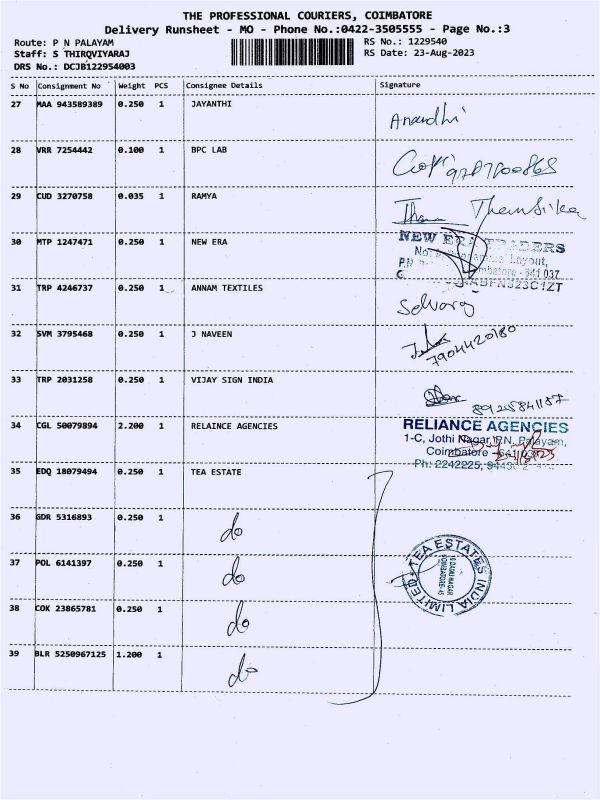 THE PROFESSIONAL COURIERS, COIMBATORE
Delivery Runsheet - MO - Phone No.:0422-3505555 - Page No.:3
Route: P N PALAYAM RS No.: 1229540
Staff: S THIRQVIYARAJ RS Date: 23-Aug-2023
DRS No.: DCJB122954003
S No Consignment No Weight PCS Consignee Details Signature
27 MAA 943589389 0.250 1 JAYANTHI
Anandhi
28 VRR 7254442 0.100 1 BPC LAB
29 CUD 3270758 0.035 1 RAMYA
30 MTP 1247471 0.250 1 NEW ERA
NEW ERA TRADERS
Layout,
641 037
31 TRP 4246737 0.250 1 ANNAM TEXTILES
Selvaraj
32 SVM 3795468 0.250 1 J NAVEEN
7904420180
33 TRP 2031258 0.250 1 VIJAY SIGN INDIA
8925841157
34 CGL 50079894 2.200 1 RELAINCE AGENCIES
RELIANCE AGENCIES
1-C, Jothi Nagar, P.N. Palayam,
Coimbatore
Ph: 2242225,
35 EDQ 18079494 0.250 1 TEA ESTATE
36 GDR 5316893 0.250 1 do
37 POL 6141397 0.250 1 do
TEA ESTATES INDIA LIMITED
38 COK 23865781 0.250 1 do
39 BLR 5250967125 1.200 1 do